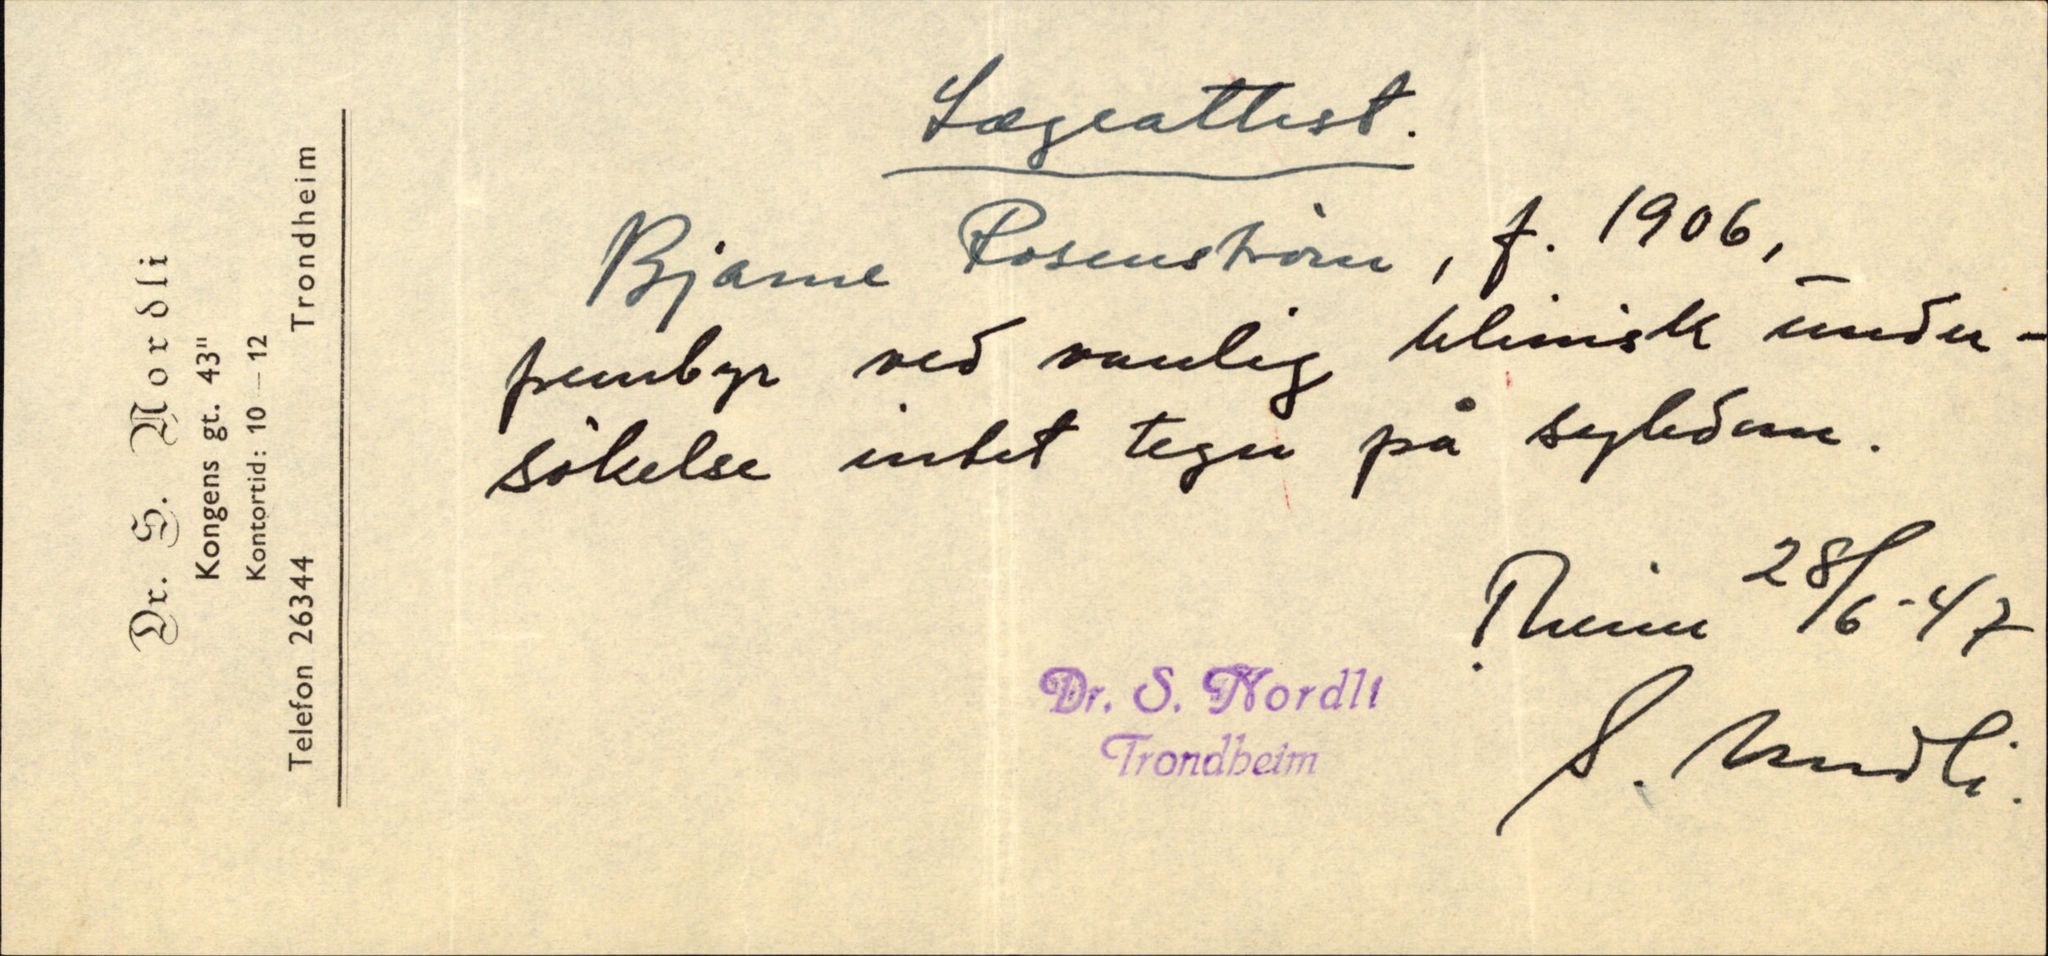 Dr. S. Nordli
Kongens gt. 43"
Kontortid: 10—12
Telefon 26344 Trondheim
Lægeattest.
Bjarne Rosenstrøm, f. 1906,
frembyr ved vanlig klinisk under-
sökelse intet tegn på sykdom.
Tr.heim 28/6-47
S. Nordli.
Dr. S. Nordli
Trondheim